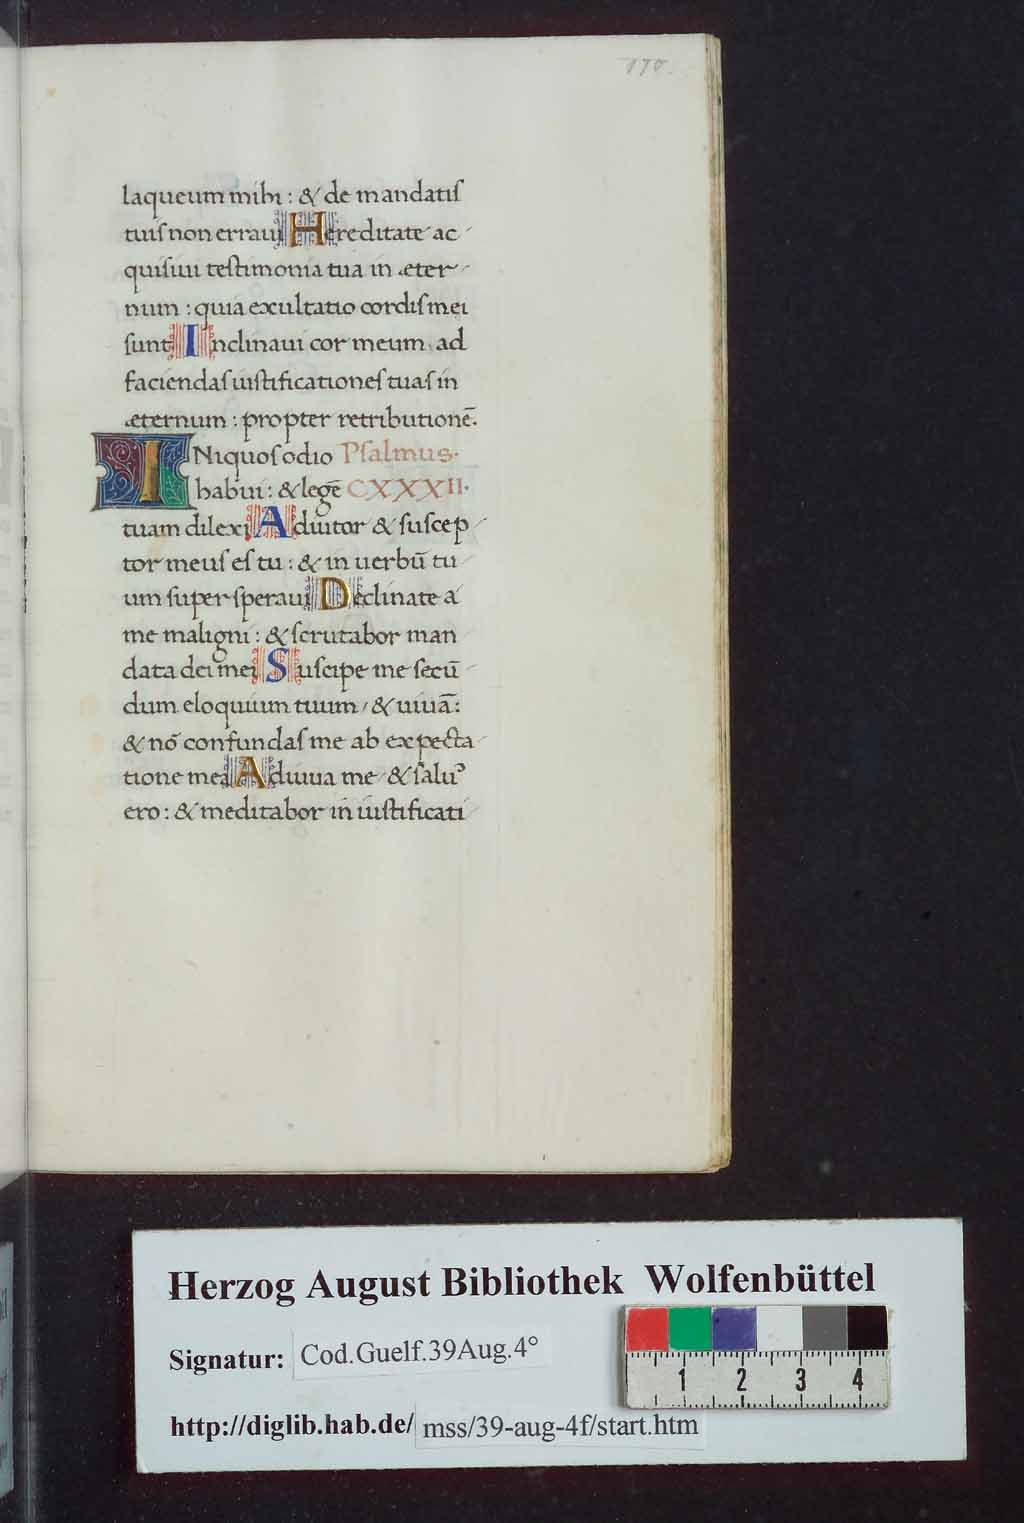 170.
laqueum mihi : & de mandatiſ
tuiſ non erraui Hereditate ac
quiſiui teſtimonia tua in æter
num : quia exultatio cordiſ mei
ſunt Inclinaui cor meum ad
faciendaſ iuſtificationeſ tuaſ in
æternum : propter retributionē.
INiquoſ odio Pſalmus.
habui : & legē CXXXII.
tuam dilexi Adiutor & ſuſcep
tor meuſ eſ tu : & in uerbū tu
um ſuperſperaui Declinate a
me maligni : & ſcrutabor man
data dei mei Suſcipe me ſecū
dum eloquium tuum / & uiuā :
& nō confundaſ me ab expecta
tione mea Adiuua me & ſaluꝰ
ero : & meditabor in iuſtificati
Herzog August Bibliothek Wolfenbüttel
Signatur: Cod.Guelf.39Aug.4°
1 2 3 4
http://diglib.hab.de/ mss/39-aug-4f/start.htm